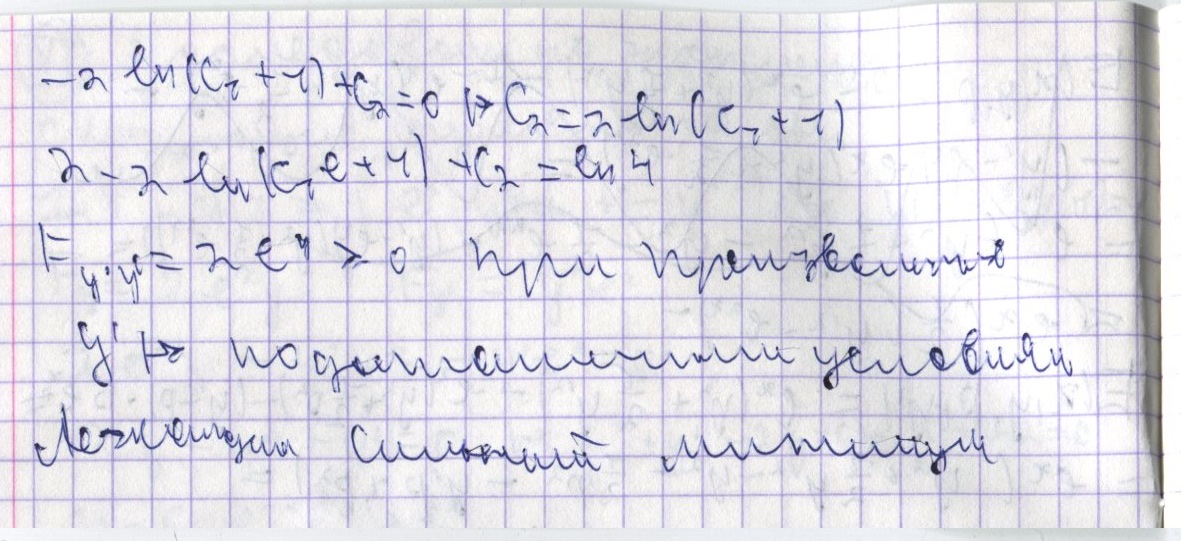 -2 ln(C₁+1)+C₂=0 ↦ C₂=2 ln(C₁+1)
2-2 ln(C₁e+1)+C₂=ln4
F_y'y'=2e^y>0 при произвольных
y' ↦ по достаточным условиям
Лежандра сильный минимум